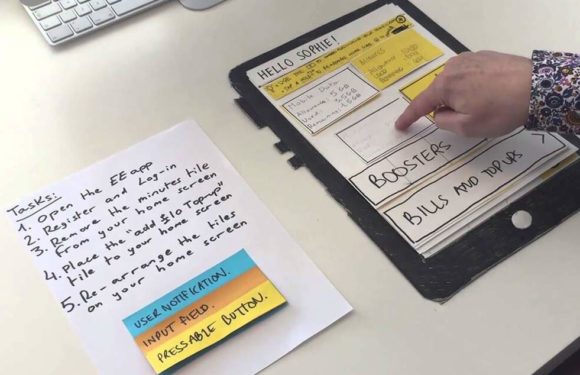 Tasks:
1. Open the EE app
2. Register and Log-in
3. Remove the minutes tile
from your home screen
4. Place the "add £10 Top-up"
tile to your home screen
5. Re-arrange the tiles
on your home screen
USER NOTIFICATION.
INPUT FIELD.
PRESSABLE BUTTON.
HELLO SOPHIE!
Mobile Data
Allowance: 5GB
Used: 3.5GB
Remaining: 1.5GB
BOOSTERS
BILLS AND TOP UPS